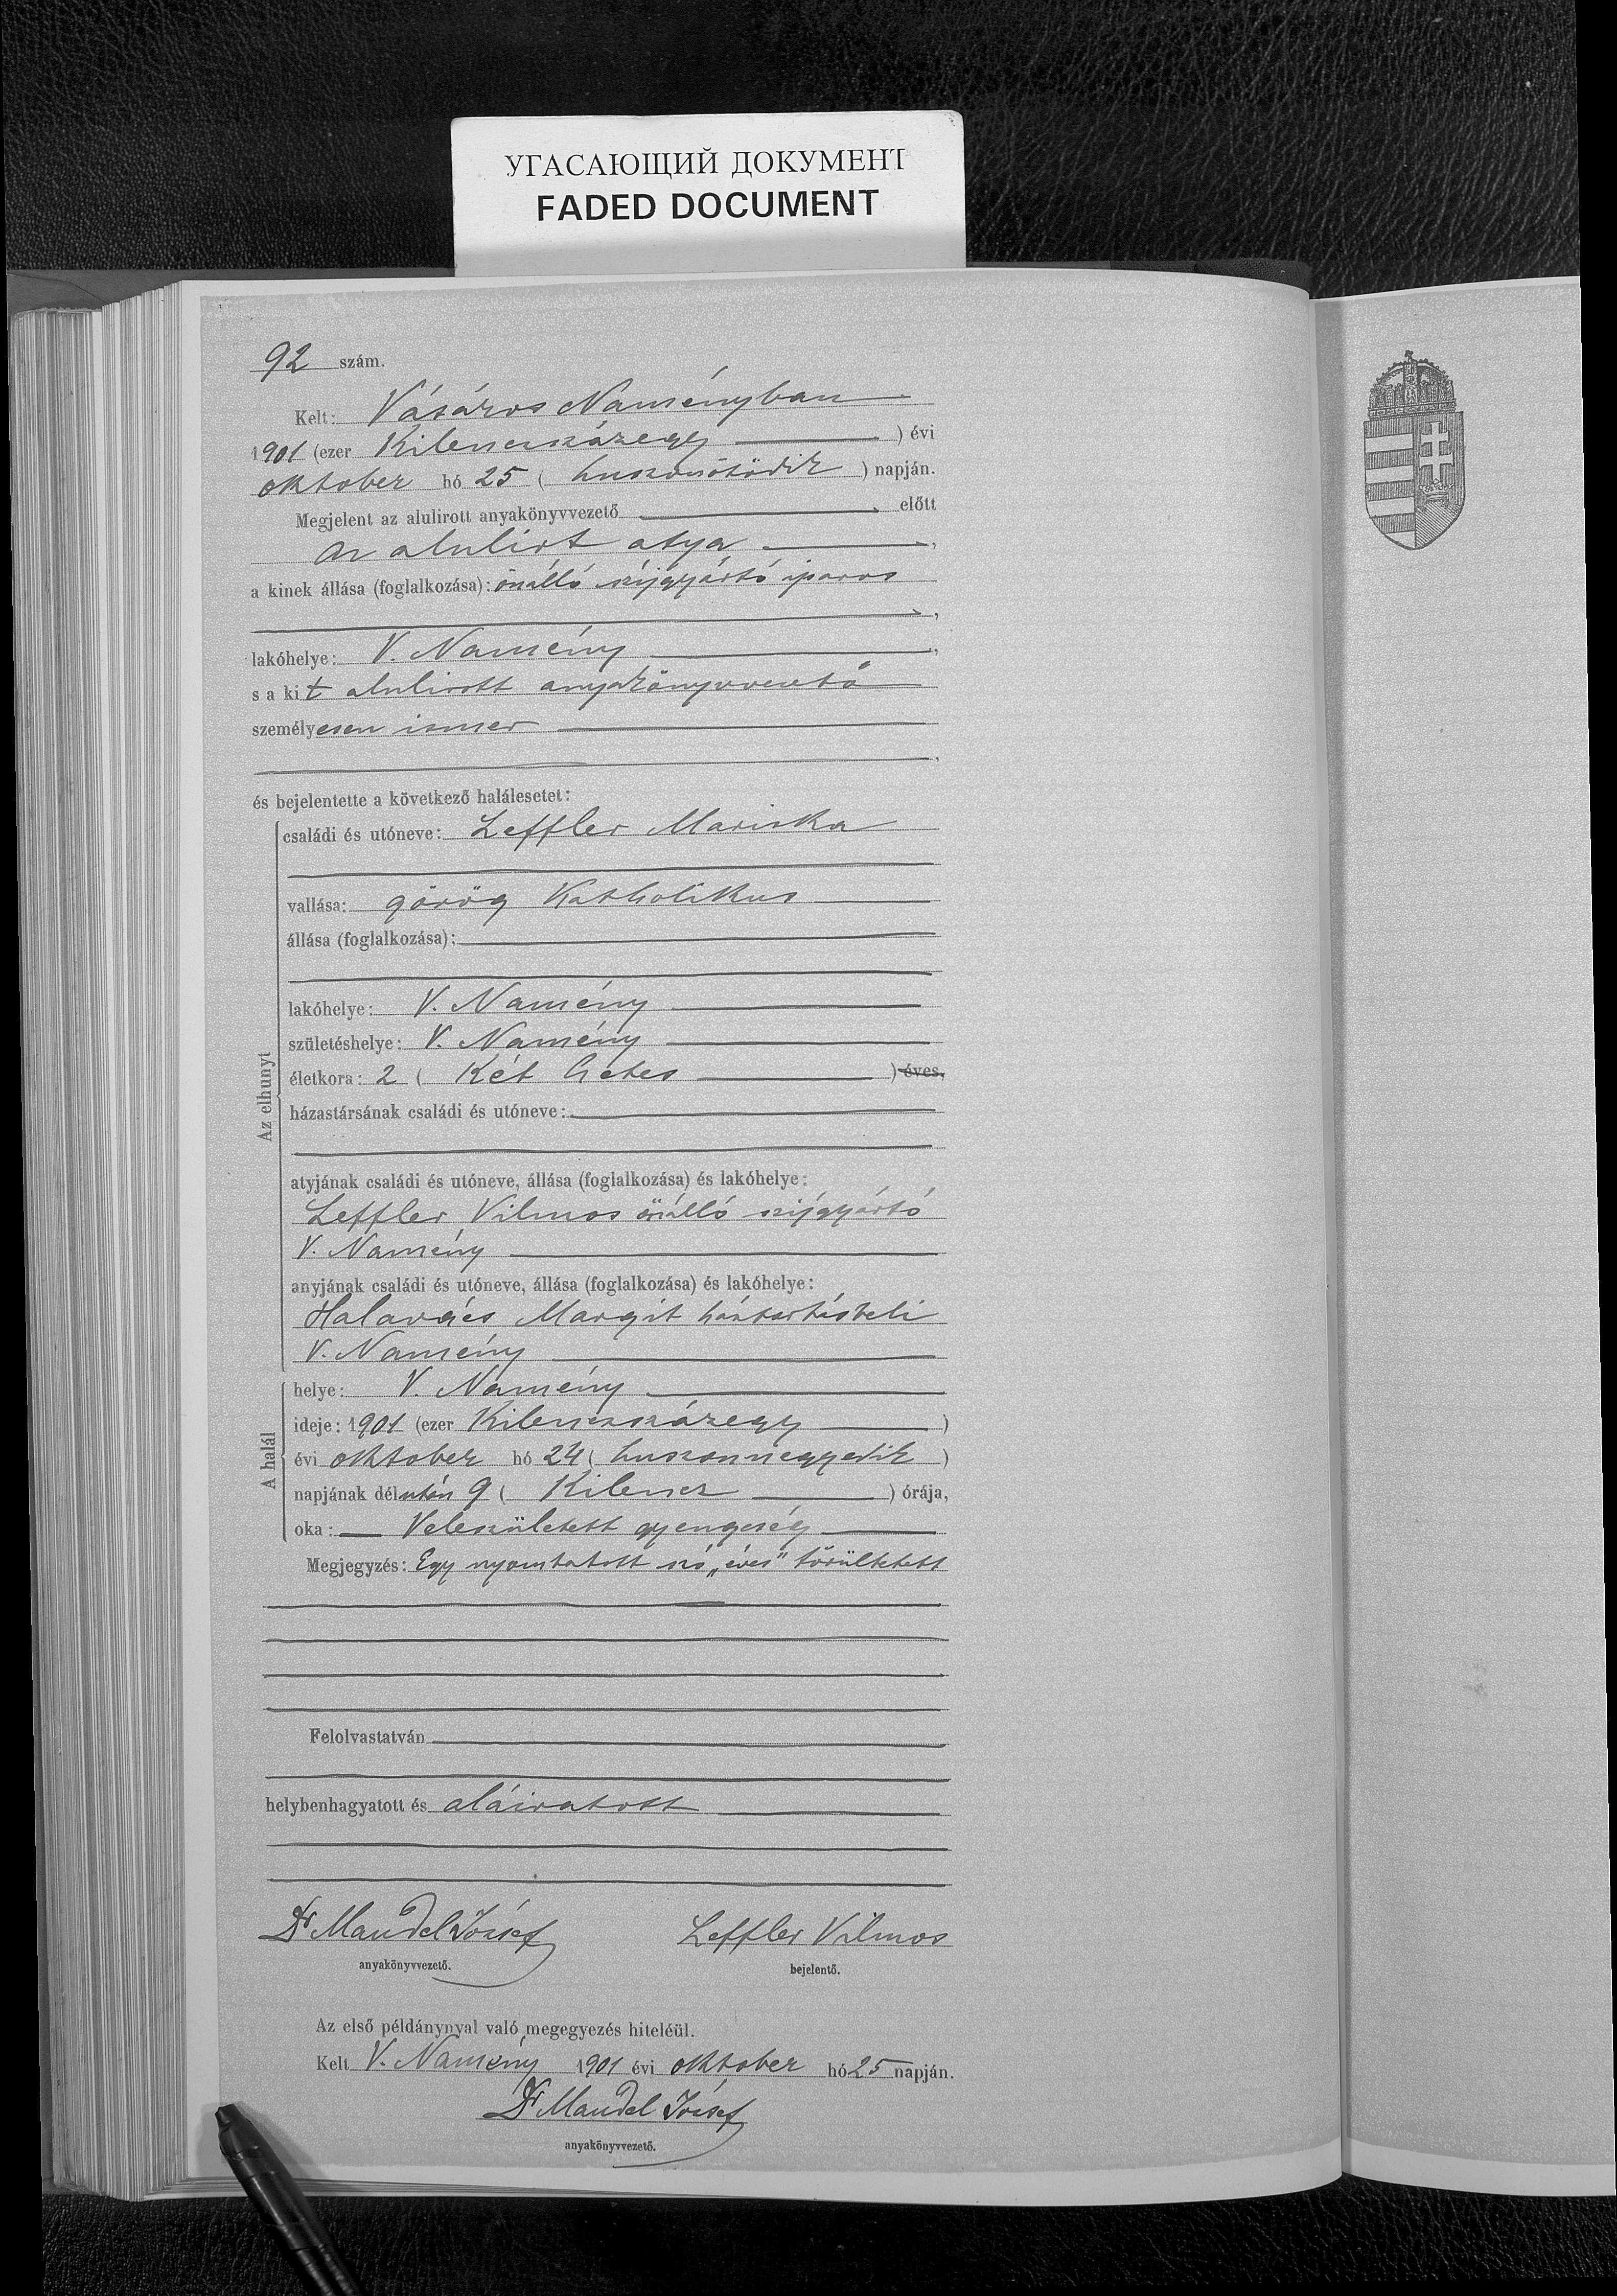 УГАСАЮЩИЙ ДОКУМЕНТ
FADED DOCUMENT
92 szám.
Kelt: Vásáros Naményban
1901 (ezer Kilenczszázegy ) évi
oktober hó 25 ( huszonötödik ) napján.
Megjelent az alulirott anyakönyvvezető előtt
az alulirt atya ,
a kinek állása (foglalkozása): önálló szijgyártó iparos
,
lakóhelye: V. Namény ,
s a kit alulirott anyakönyvvezető
személyesen ismer
,
és bejelentette a következő halálesetet:
Az elhunyt
családi és utóneve: Leffler Mariska
vallása: görög Katholikus
állása (foglalkozása):
lakóhelye: V. Namény
születéshelye: V. Namény
életkora: 2 ( Két hetes ) éves,
házastársának családi és utóneve:
atyjának családi és utóneve, állása (foglalkozása) és lakóhelye:
Leffler Vilmos önálló szijgyártó
V. Namény
anyjának családi és utóneve, állása (foglalkozása) és lakóhelye:
Halavács Margit háztartásbeli
V. Namény
A halál
helye: V. Namény
ideje: 1901 (ezer Kilenczszázegy )
évi oktober hó 24 ( huszonnegyedik )
napjának délután 9 ( Kilencz ) órája,
oka: Veleszületett gyengeség
Megjegyzés: Egy nyomtatott szó „éves" törültetett
Felolvastatván
helybenhagyatott és aláiratott
Dr Mandel József Leffler Vilmos
anyakönyvvezető. bejelentő.
Az első példánynyal való megegyezés hiteléül.
Kelt V. Namény 1901 évi oktober hó 25 napján.
Dr Mandel József
anyakönyvvezető.